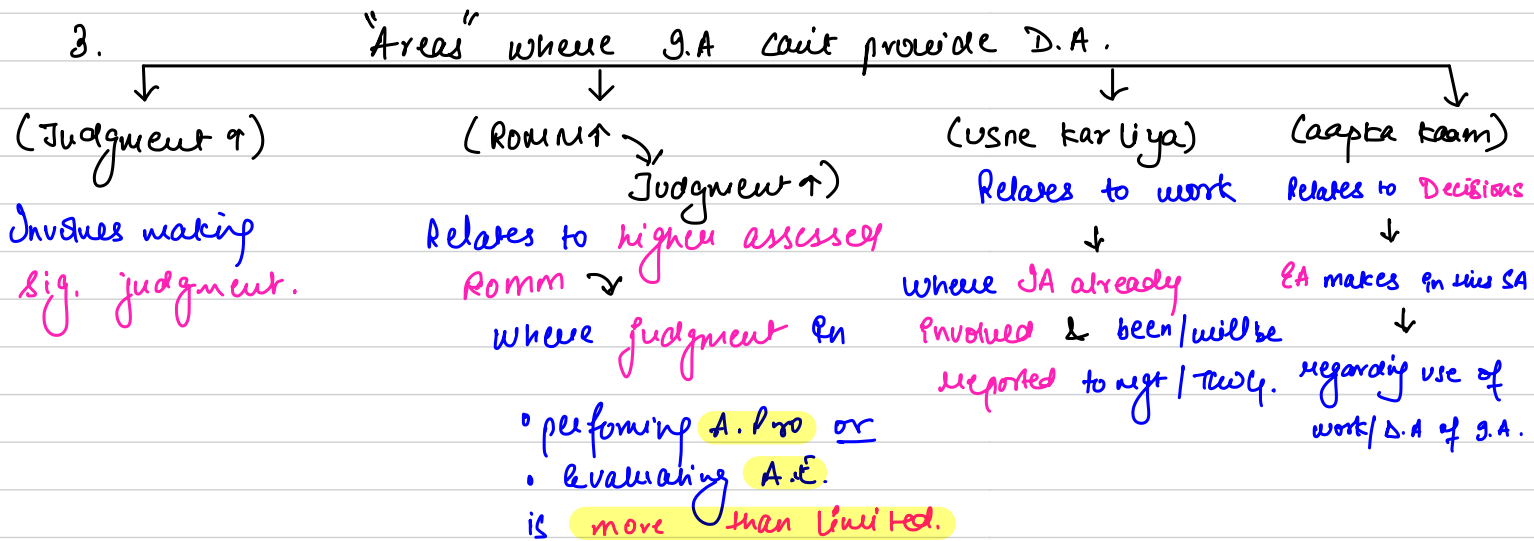 3. "Areas" where I.A can't provide D.A.
(Judgment ↑)
Involves making
sig. judgment.
(ROMM↑
Judgment ↑)
Relates to higher assessed
ROMM
where judgment in
• performing A.Pro or
• evaluating A.E.
is more than limited.
(usne kar liya)
Relates to work
where IA already
involved & been/will be
reported to mgt / TCWG.
(aapka kaam)
Relates to Decisions
EA makes in this SA
regarding use of
work/ D.A of I.A.